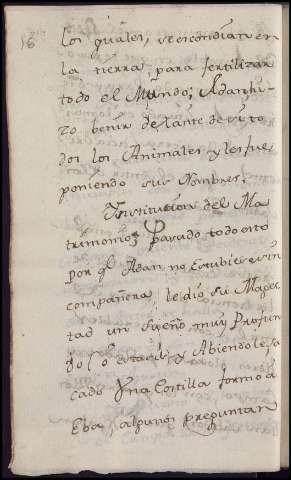 16
los quales, se escondian en
la tierra, para fertilizar
todo el Mundo; Adan hi-
zo benir delante de si to
dos los Animales y les fue
poniendo sus Nombres.
Institucion del Ma
trimonio; Pasado todo esto
por q̃ Adan no estubiese sin
compañera, le dio su Mages
tad un sueño, muy Profun
do, y Abiendole sa
cado Vna Costilla formó á
Eba, algunos preguntan